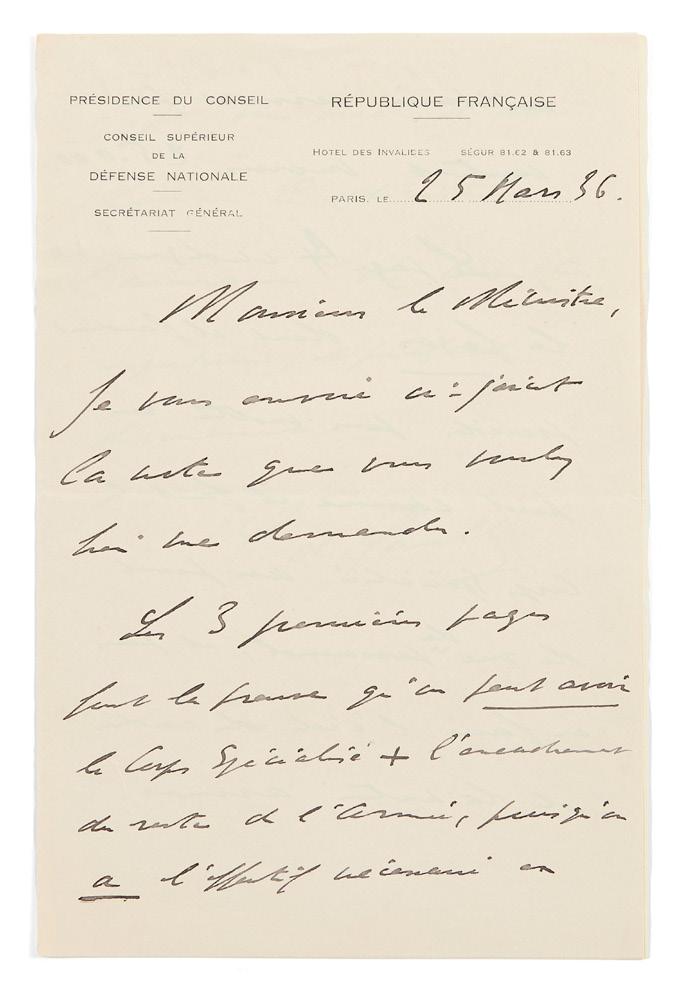 PRÉSIDENCE DU CONSEIL
CONSEIL SUPÉRIEUR
DE LA
DÉFENSE NATIONALE
SECRÉTARIAT GÉNÉRAL
RÉPUBLIQUE FRANÇAISE
HOTEL DES INVALIDES SÉGUR 81.62 & 81.63
PARIS, LE 25 Mars 36.
Monsieur le Ministre,
Je vous envoie ci-joint
la note que vous voulez
bien me demander.
Les 3 premières pages
font la preuve qu'on peut avoir
le Corps Spécialisé + l'encadrement
du reste de l'Armée, puisqu'on
a l'effectif nécessaire en